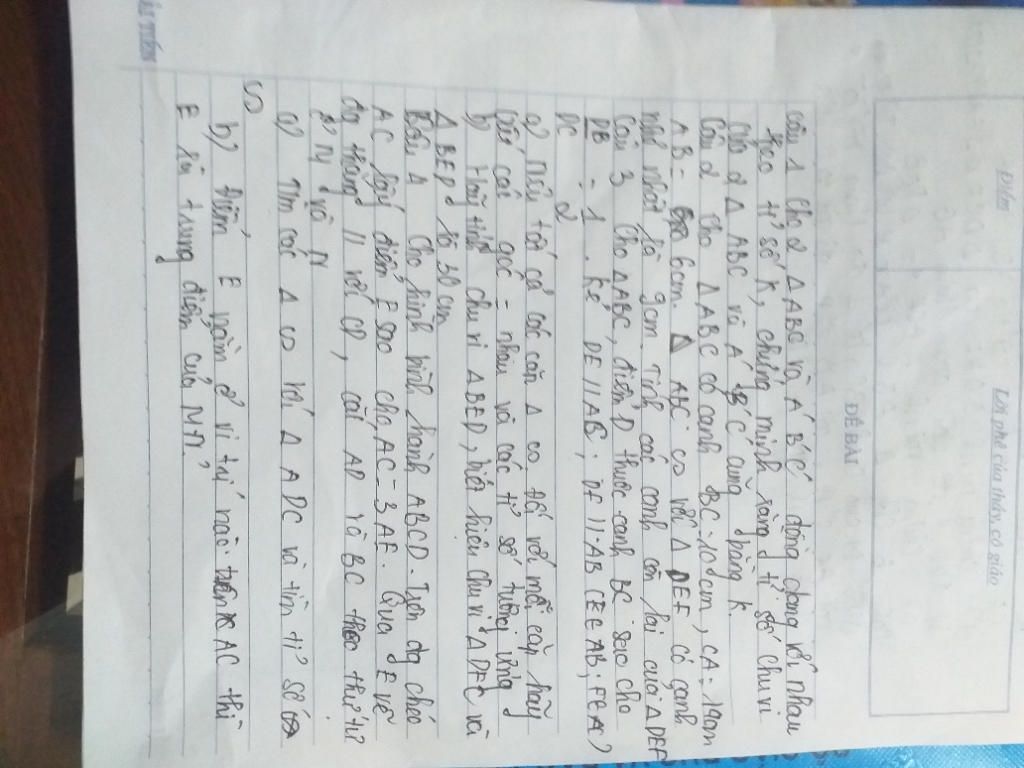 Điểm
Lời phê của thầy, cô giáo
ĐỀ BÀI
câu 1 cho 2 Δ ABC và A'B'C' đồng dạng với nhau
theo tỉ số K, chứng minh rằng tỉ số chu vi
của 2 Δ ABC và A'B'C' cũng bằng K.
Câu 2 cho Δ ABC có cạnh BC = 10cm, CA = 14cm
AB = 6cm. Δ ABC ∽ với Δ DEF có cạnh
nhỏ nhất là 9cm. Tính các cạnh còn lại của Δ DEF
Câu 3 Cho ΔABC, điểm D thuộc cạnh BC sao cho
DB/DC = 1/2. Kẻ DE // AC; DF // AB (E ∈ AB; F ∈ AC)
a) Nêu tất cả các cặp Δ ∽ đối với mỗi cặp hãy
viết các góc = nhau và các tỉ số tương ứng
b) Hãy tính chu vi Δ BED, biết hiệu chu vi Δ DFC và
Δ BED là 30 cm
Bài 4 Cho hình bình hành ABCD. Trên đg chéo
AC lấy điểm E sao cho AC = 3AE. Qua E vẽ
đg thẳng // với CD, cắt AD và BC theo thứ tự
ở M và N
a) Tìm các Δ ∽ với Δ ADC và tìm tỉ số
∽
b) Điểm E nằm ở vị trí nào trên AC thì
E là trung điểm của MN?